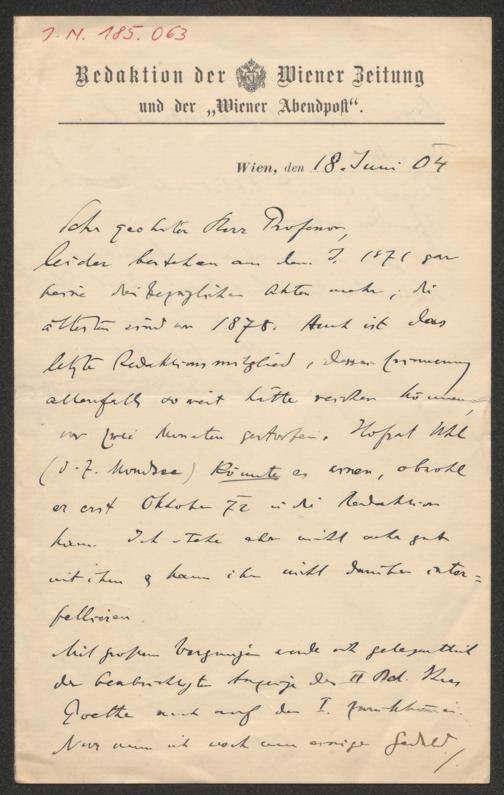 J. N. 185.063
Redaktion der Wiener Zeitung
und der „Wiener Abendpost“.
Wien, den 18. Juni 04
Sehr geehrter Herr Professor,
leider bestehen aus dem J. 1871 gar
keine diesbezüglichen Akten mehr; die
ältesten sind von 1878. Auch ist das
letzte Redaktionsmitglied, dessen Erinnerung
allenfalls so weit hätte reichen können,
vor zwei Monaten gestorben. Hofrat Uhl
(d. Z. Mondsee) könnte es wissen, obwohl
er erst Oktober 72 in die Redaktion
kam. Ich stehe aber nicht sehr gut
mit ihm & kann ihn nicht darüber inter=
pellieren.
Mit großem Vergnügen werde ich gelegentlich
der beabsichtigten Anzeige des II Bd. Ihres
Goethe auch auf den I. zurückkommen.
Nur muss ich noch um einige Geduld